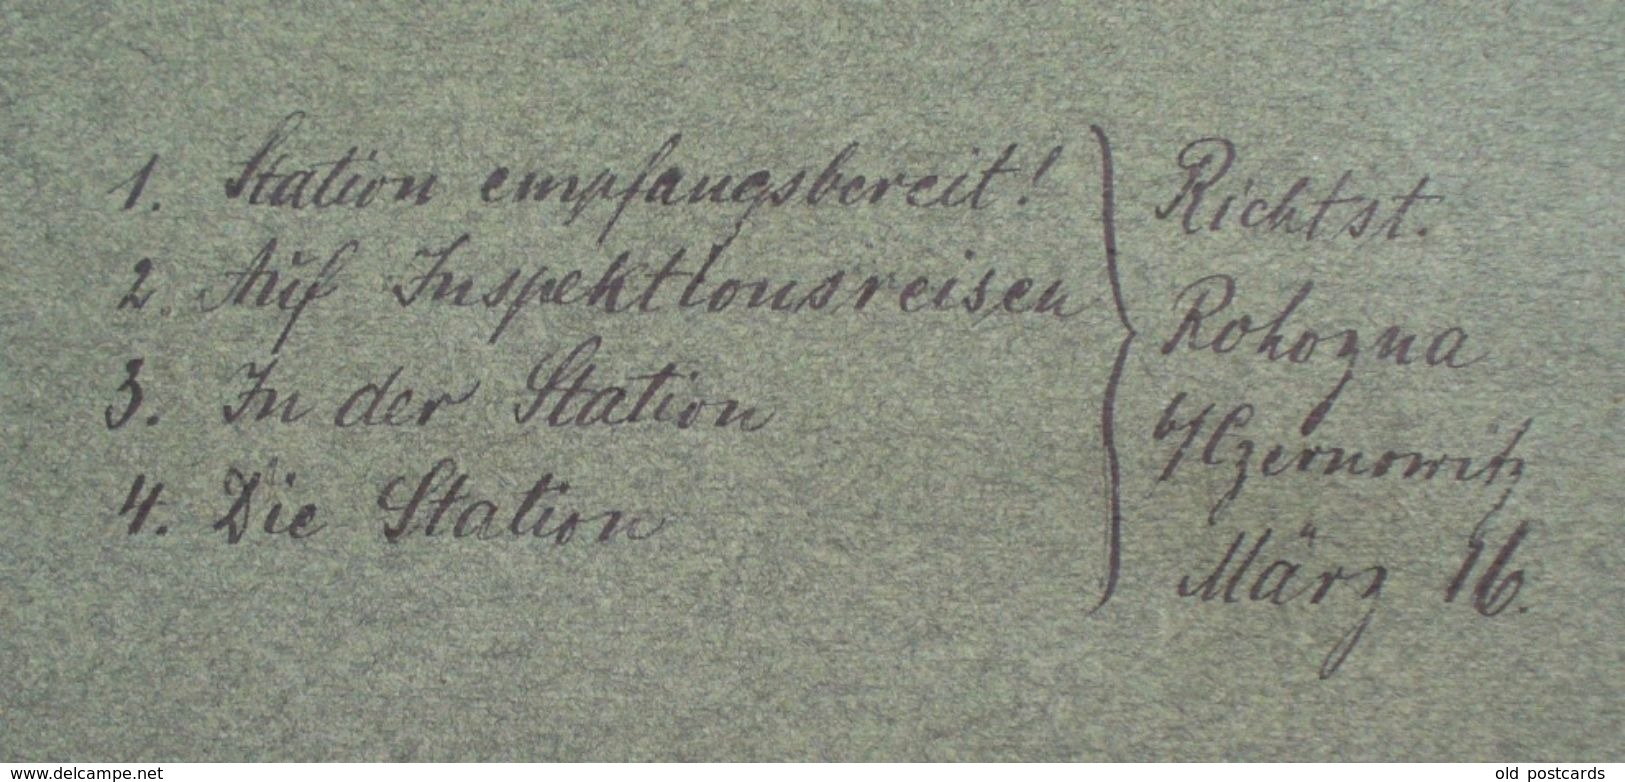 1. Station empfangsbereit!
2. Auf Inspektionsreisen
3. In der Station
4. Die Station
Richtst.
Rohozna
b/Czernowitz
März 16.
www.delcampe.net
old_postcards